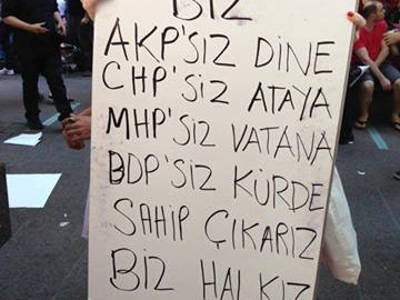 BİZ
AKP'SİZ DİNE
CHP'SİZ ATAYA
MHP'SİZ VATANA
BDP'SİZ KÜRDE
SAHİP ÇIKARIZ
BİZ HALKIZ